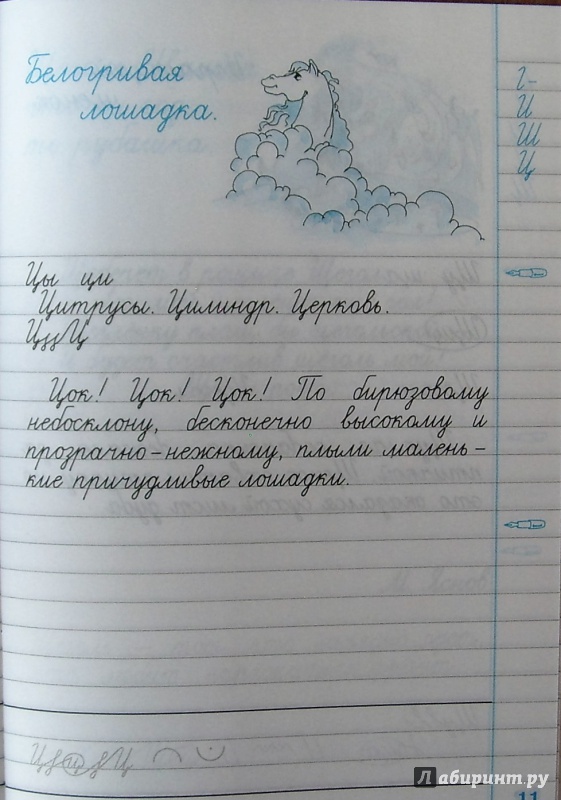 Белогривая
лошадка.
Г-
И
Ш
Ц
Цы ци
Цитрусы. Цилиндр. Церковь.
Ц Ц
Цок! Цок! Цок! По бирюзовому
небосклону, бесконечно высокому и
прозрачно-нежному, плыли малень-
кие причудливые лошадки.
Лабиринт.ру
11